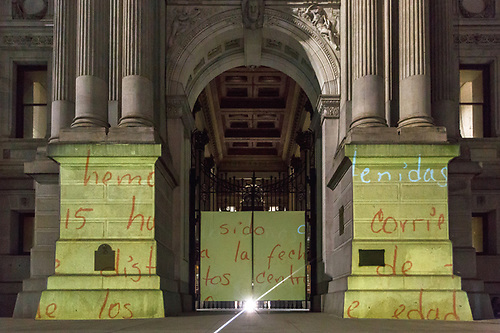 hemo
15 ho
e list
e los
sido
a la fech
tos centr
tenidas
Corrie
de -
e edad